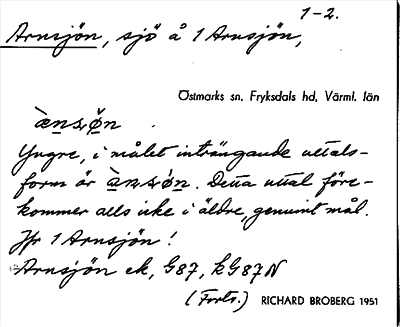 1-2.
Arnsjön, sjö å 1 Arnsjön,
Östmarks sn. Fryksdals hd, Värml. län
Yngre, i målet inträngande uttals-
form är Detta uttal före-
kommer alls icke i äldre, genuint mål.
Jfr 1 Arnsjön!
Arnsjön ek, G87, kG87N
(Forts.) RICHARD BROBERG 1951